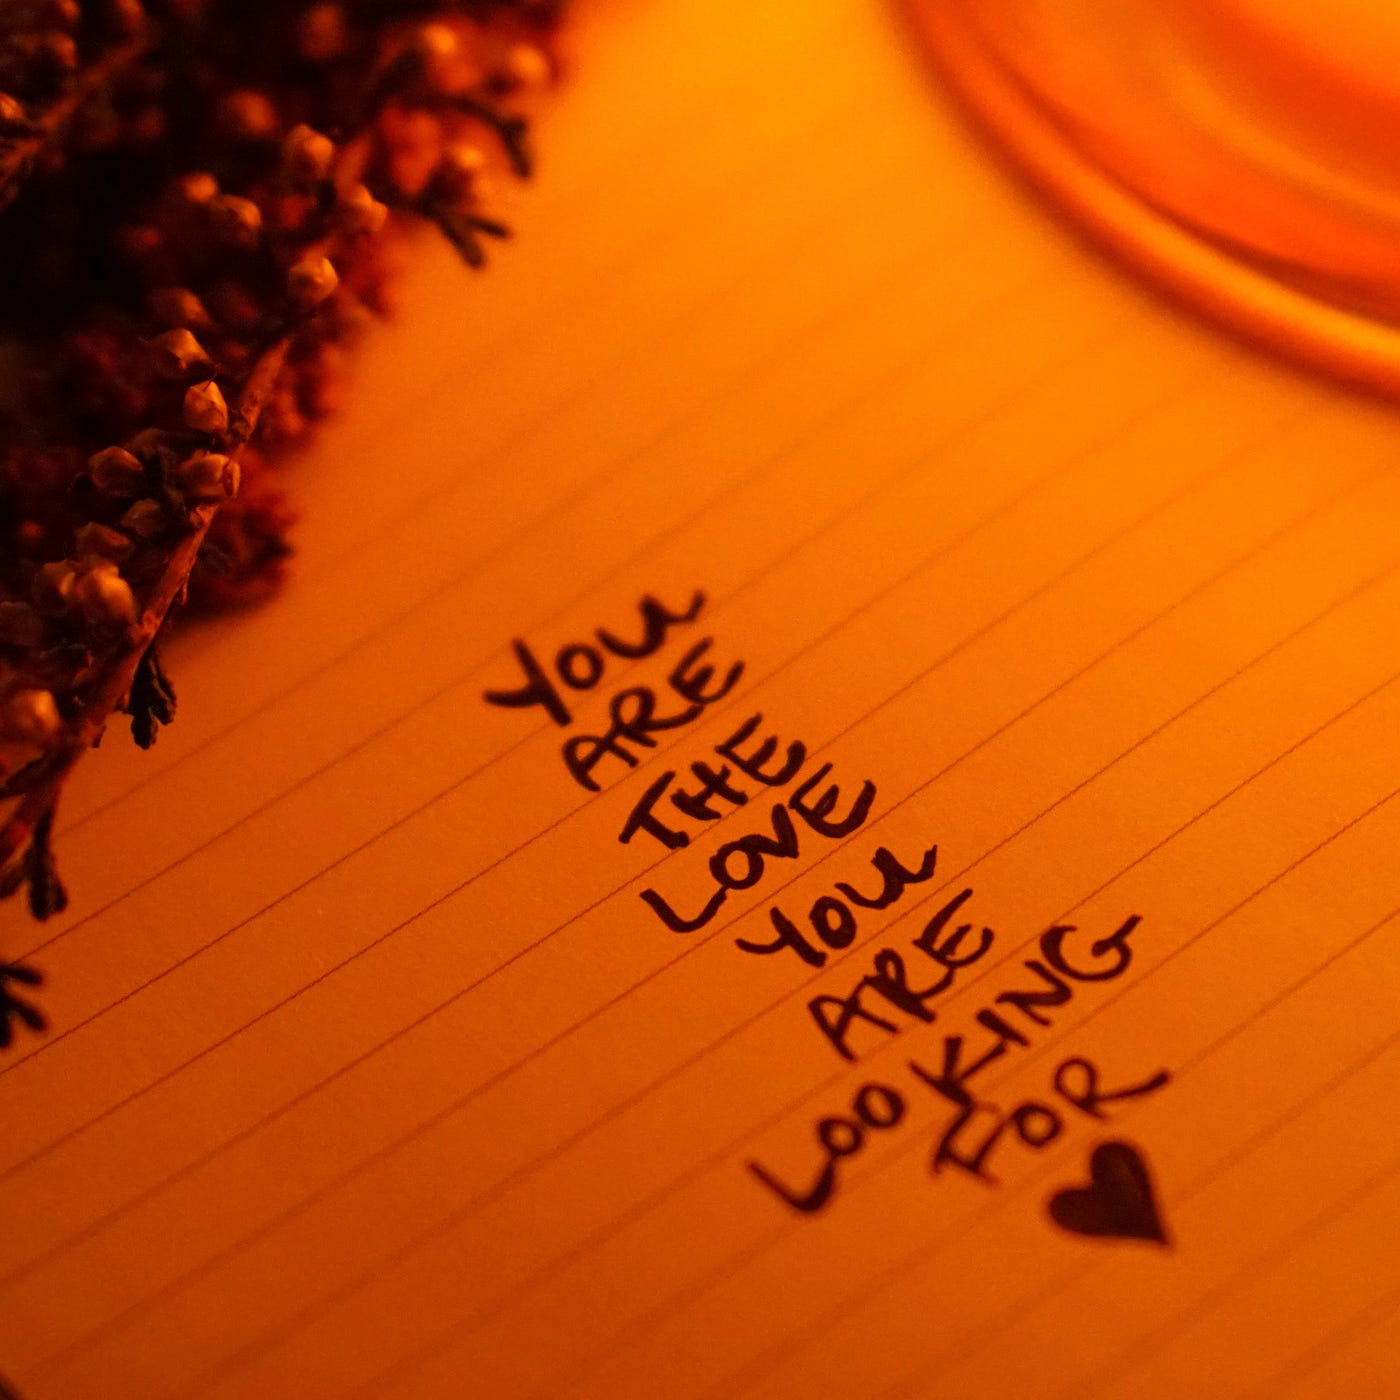 You
ARE
THE
LOVE
You
ARE
LOOKING
FOR